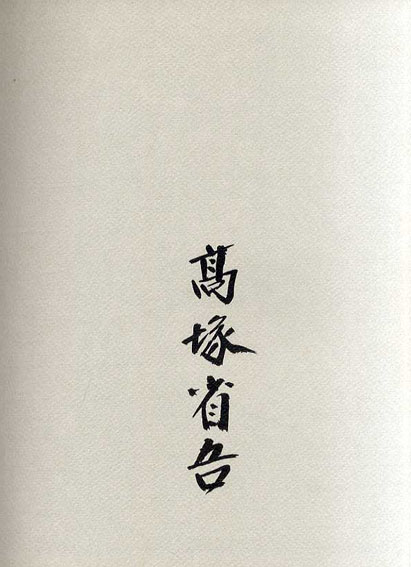 髙塚省吾